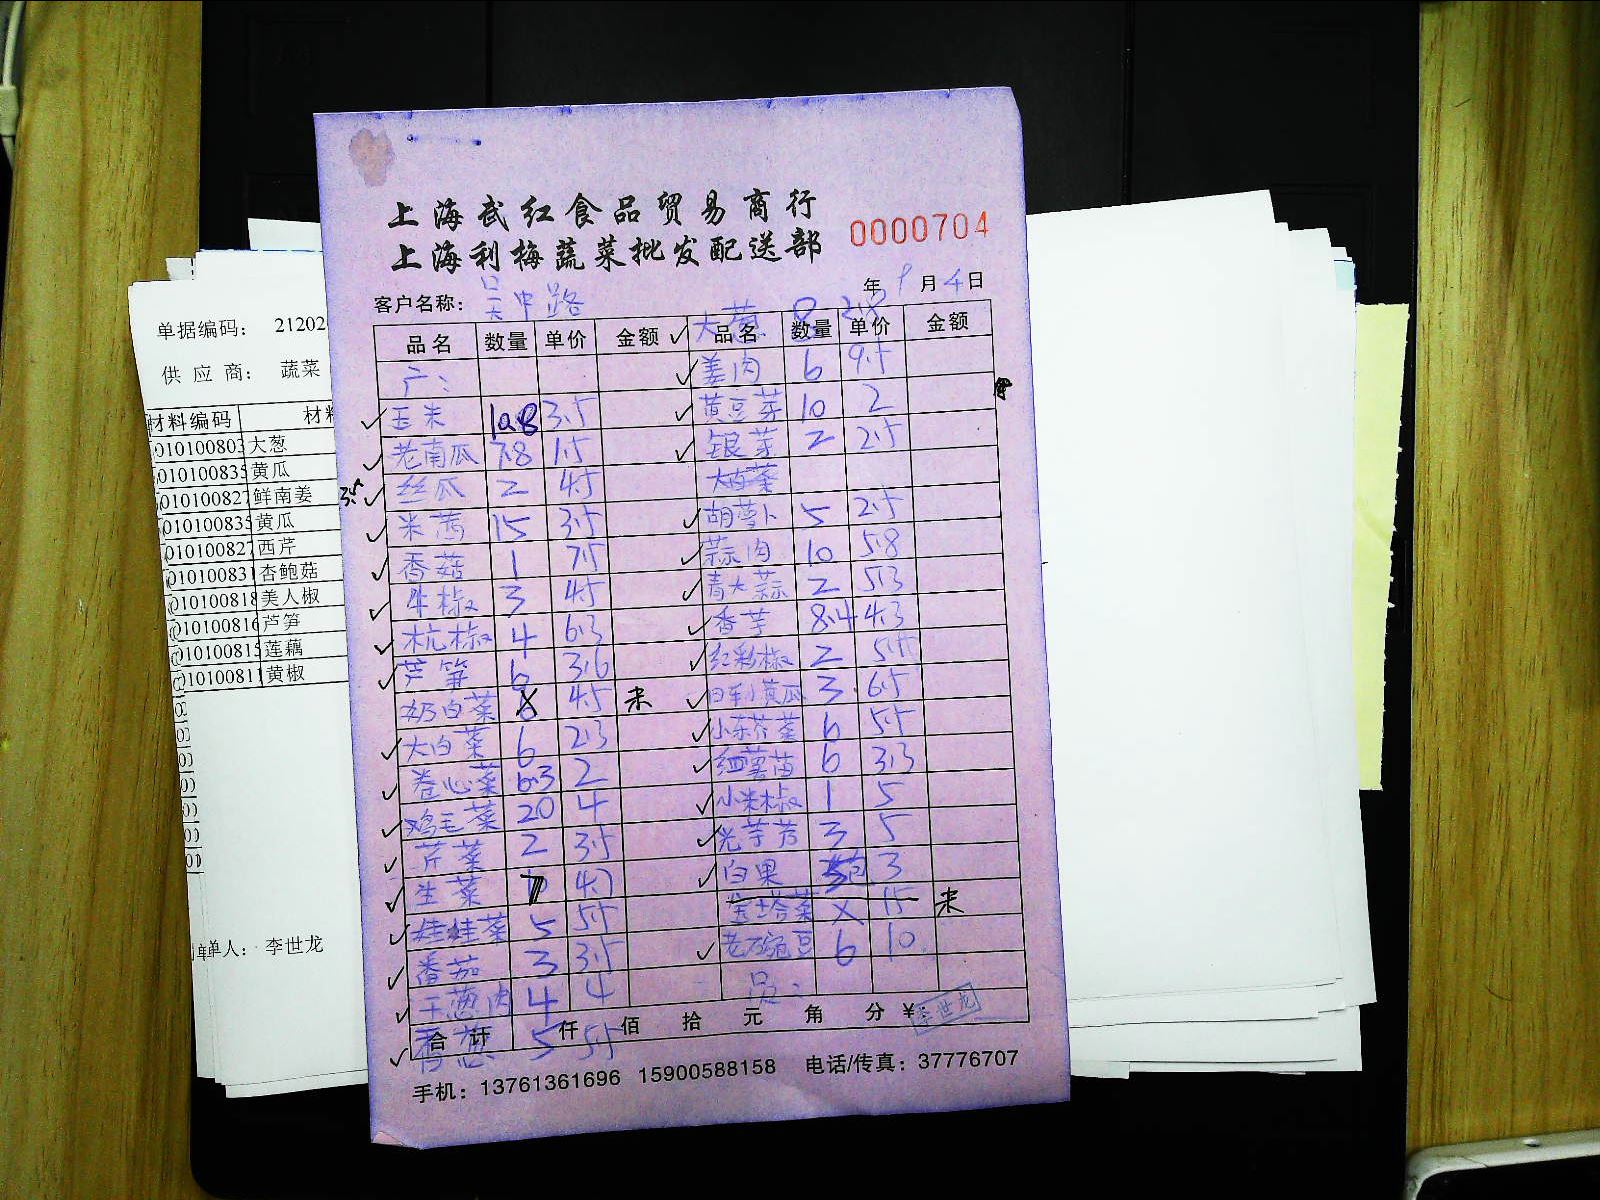 上海武红食品贸易商行
上海利梅蔬菜批发配送部
0000704
客户名称: 吴中路 年 9月4日
品名 数量 单价 金额
产:
玉米 10.8 3.5
老南瓜 7.8 1.5
3.5 丝瓜 2 4.5
米苋 15 3.5
香菇 1 7.5
牛椒 3 4.5
杭椒 4 6.3
芦笋 6 3.6
奶白菜 4.5 未
大白菜 6 2.3
卷心菜 6.3 2
鸡毛菜 20 4
芹菜 2 3.5
生菜 4.7
娃娃菜 5 5.5
番茄 3 3.5
干葱肉 4 4
香葱 5 5.5
大葱 8 2.8
品名 数量 单价 金额
姜肉 6 9.5
黄豆芽 10 2
银芽 2 2.5
大白菜
胡萝卜 5 2.5
蒜肉 10 5.8
青大蒜 2 5.3
香芋 8.4 4.3
红彩椒 2 5.5
日本小黄瓜 3 6.5
小棠芥菜 6 5.5
红薯苗 6 3.3
小米椒 1 5
光芋艿 3 5
白果 包 3
宝塔菜 X 15 未
老豌豆 6 10
员:
合计 仟 佰 拾 元 角 分 ¥ 李世龙
手机: 13761361696 15900588158 电话/传真: 37776707
单据编码: 21202
供应商: 蔬菜
材料编码 材料
010100803 大葱
010100835 黄瓜
010100827 鲜南姜
010100835 黄瓜
010100827 西芹
010100831 杏鲍菇
010100818 美人椒
010100816 芦笋
010100815 莲藕
010100811 黄椒
单人: 李世龙